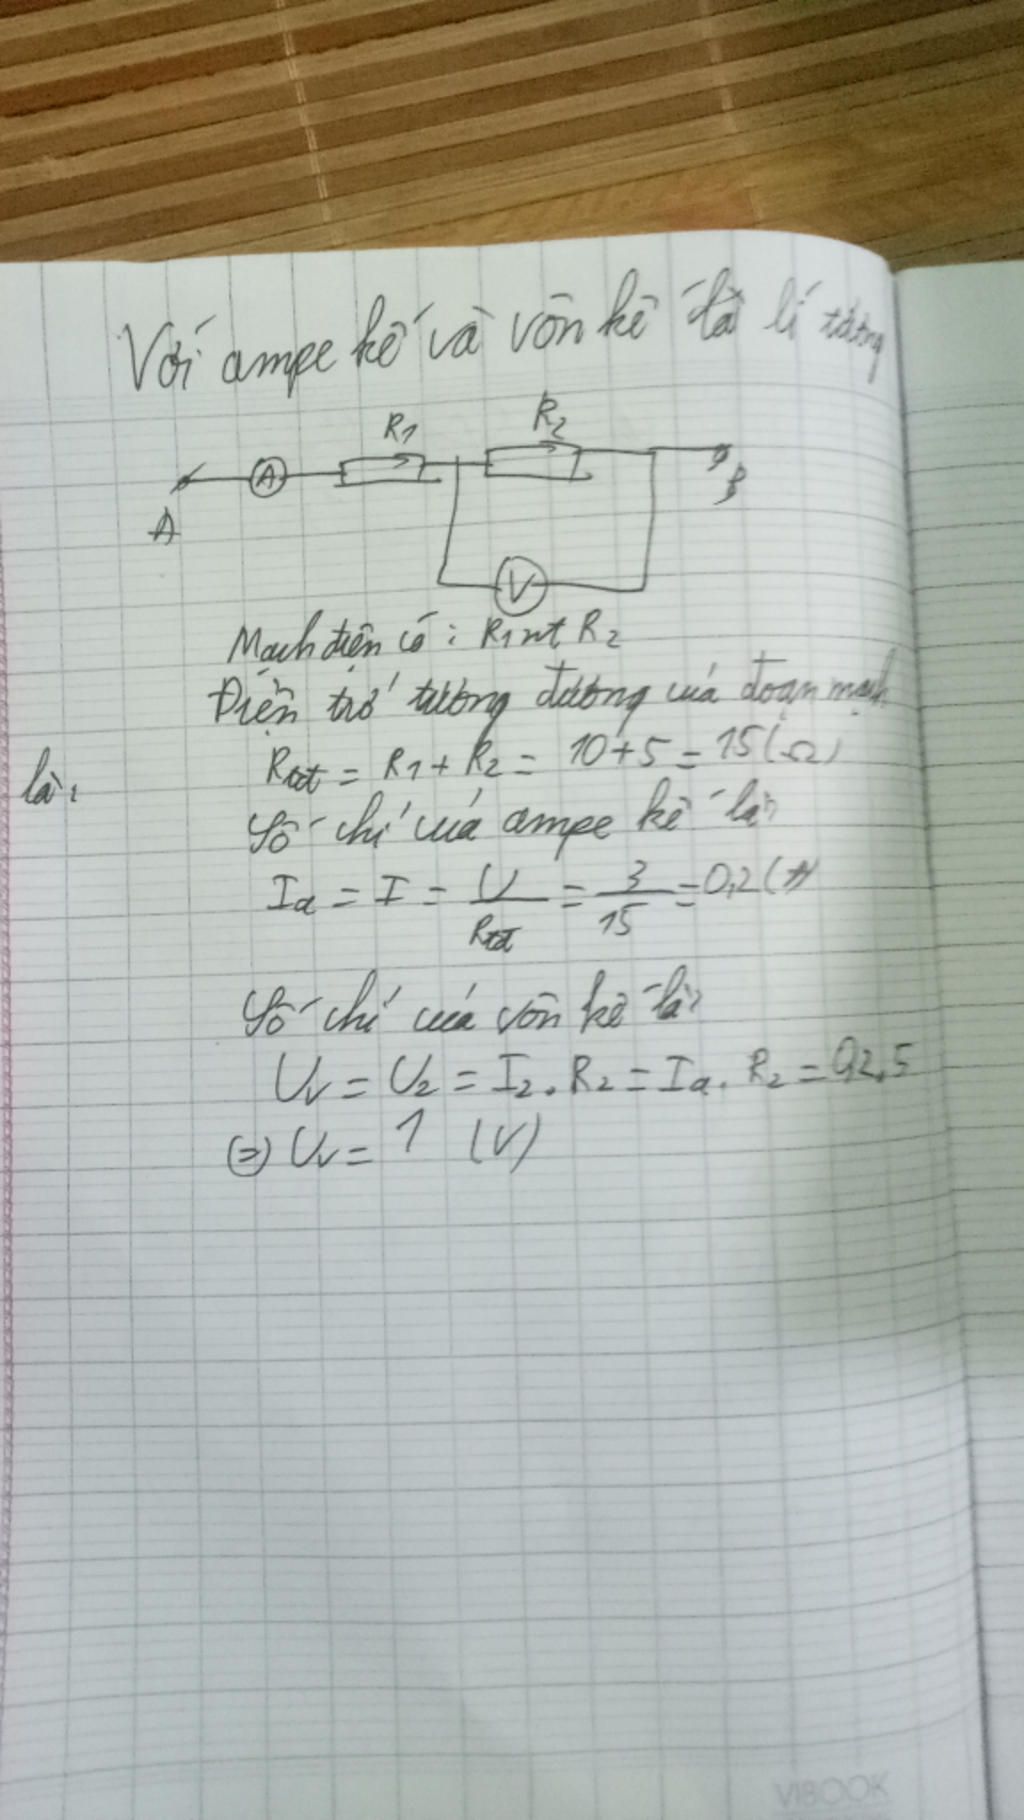 Với ampe kế và vôn kế là lí tưởng
R1
R2
A
A
B
V
Mạch điện có: R1 nt R2
Điện trở tương đương của đoạn mạch
là:
Rtđ = R1 + R2 = 10+5 = 15 (Ω)
Số chỉ của ampe kế là:
Ia = I = U/Rtđ = 3/15 = 0,2 (A)
Số chỉ của vôn kế là:
Uv = U2 = I2 . R2 = Ia . R2 = 0,2.5
(=) Uv = 1 (V)
VIBOOK